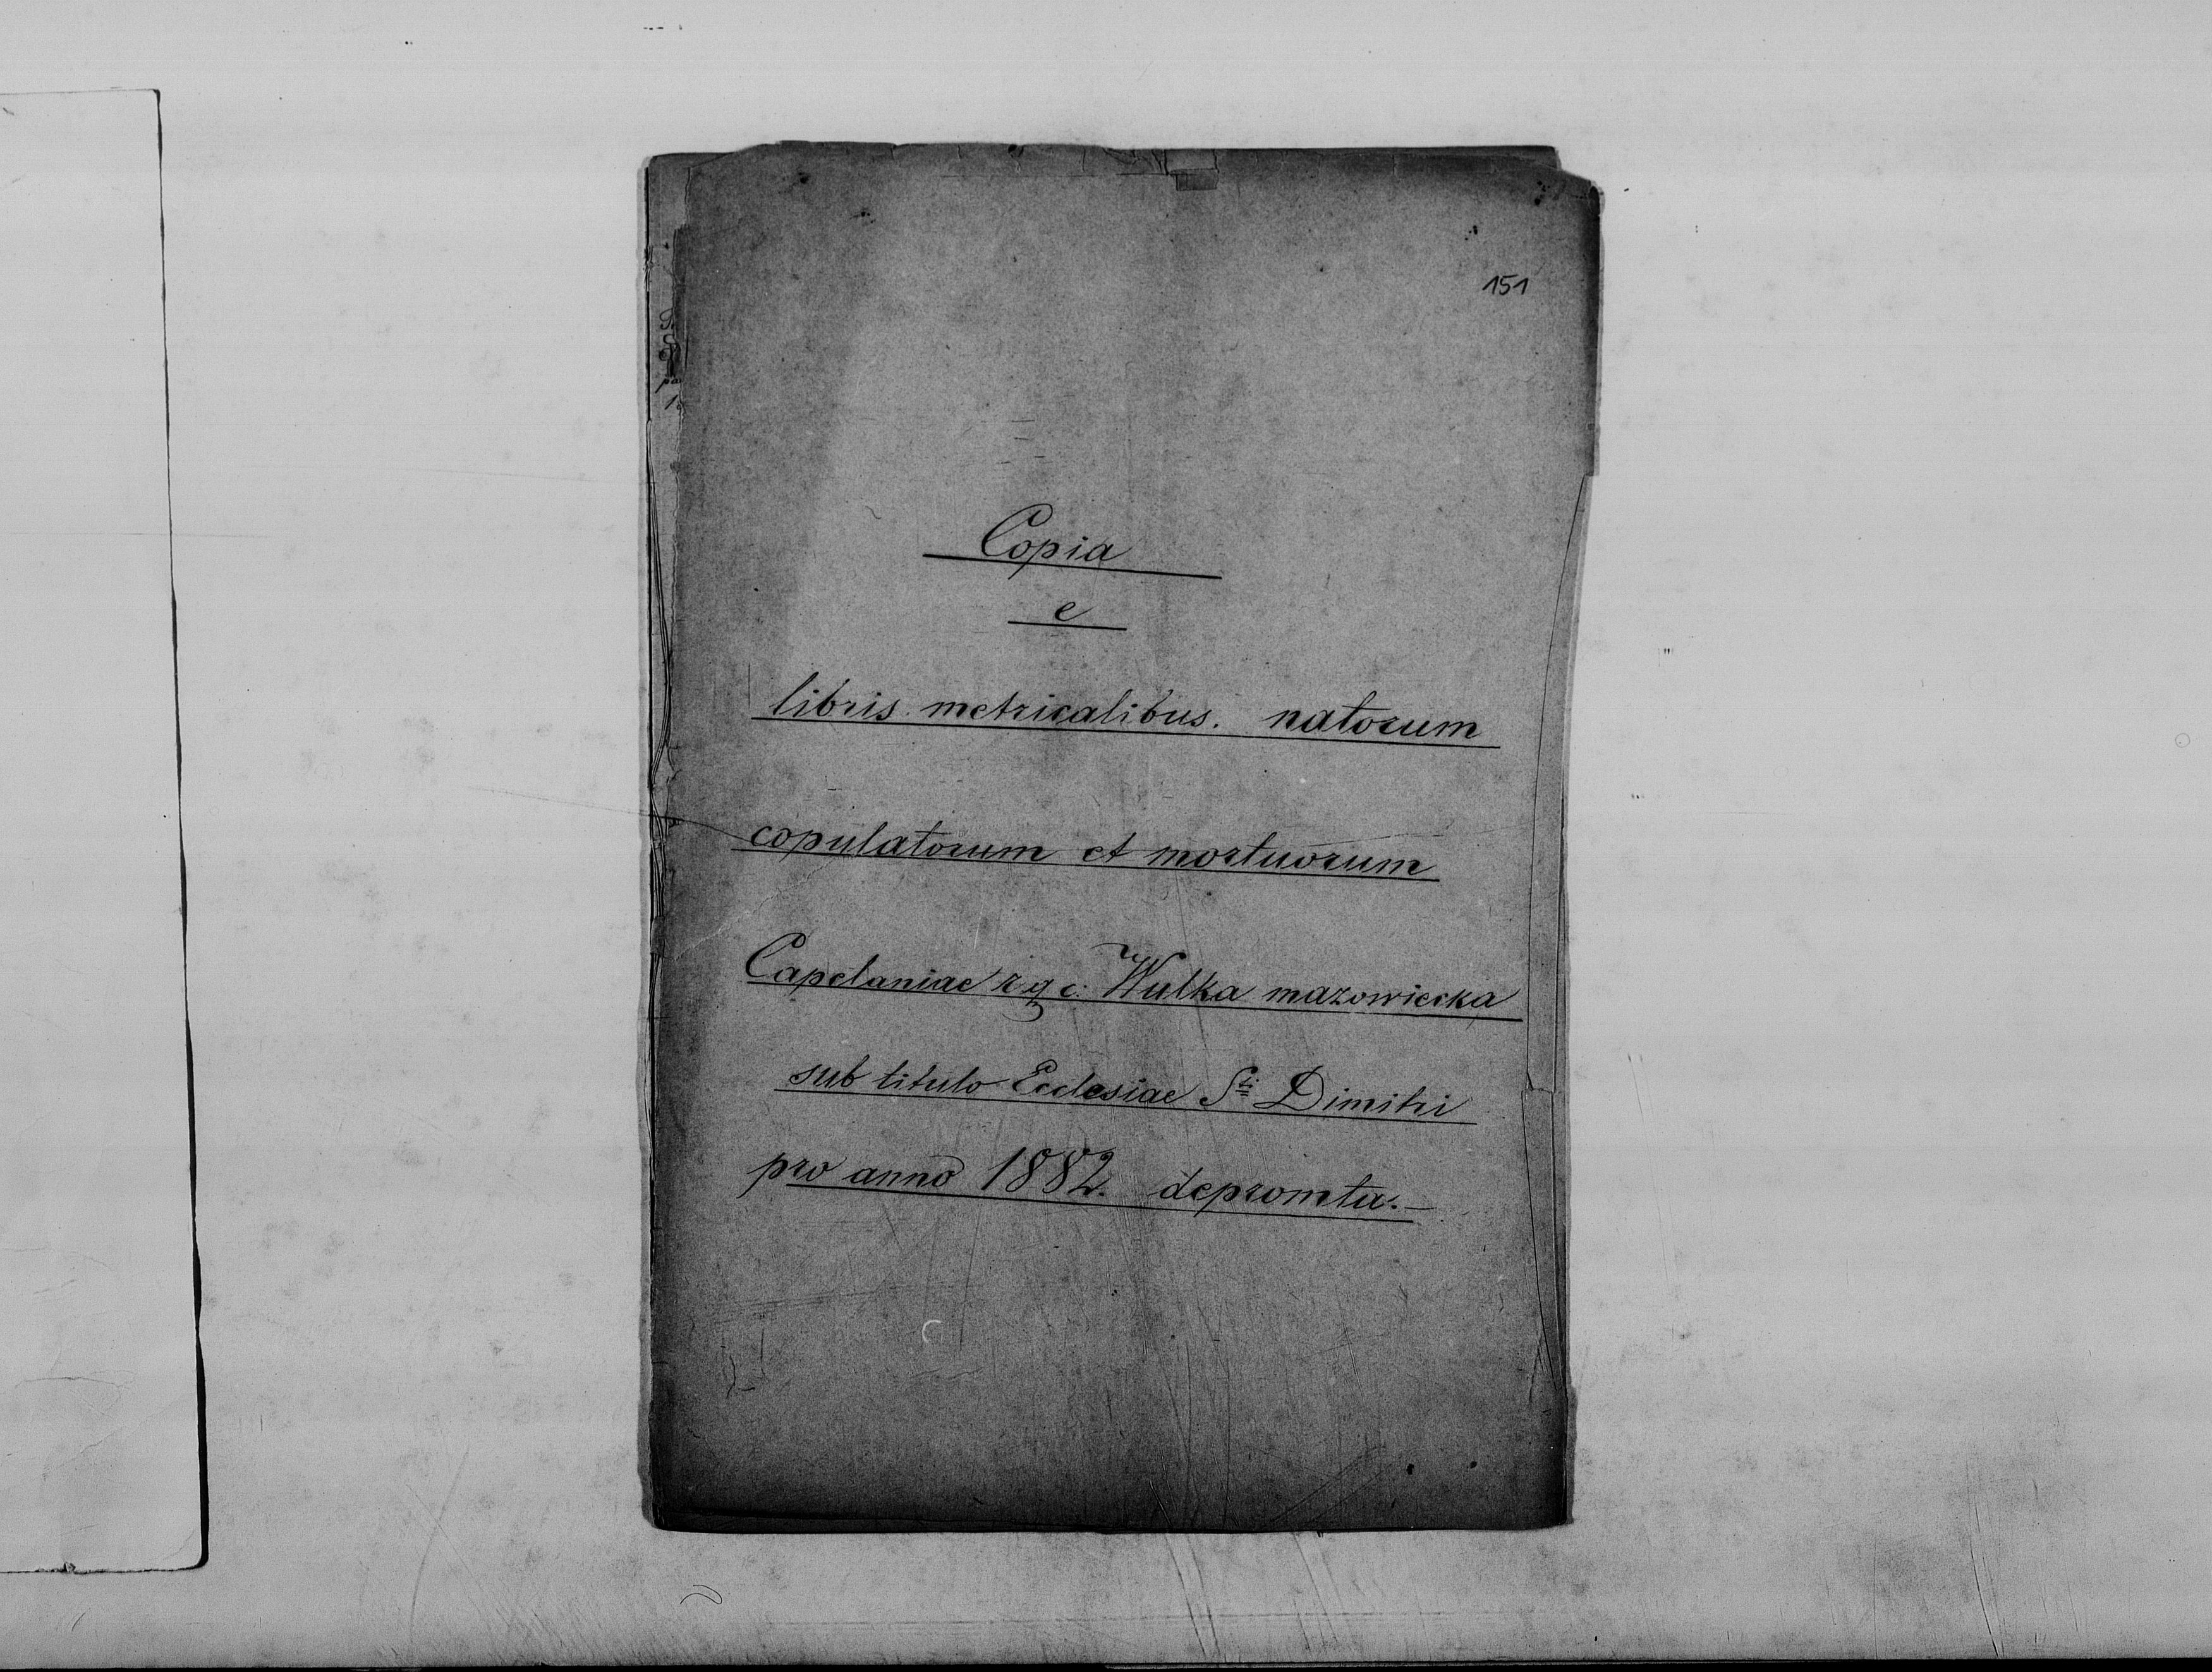 151
Copia
e
libris metricalibus. natorum
copulatorum et mortuorum
Capelaniae r g c: Wulka mazowiecka
sub titulo Ecclesiae Sti Dimitri
pro anno 1882. depromta.—